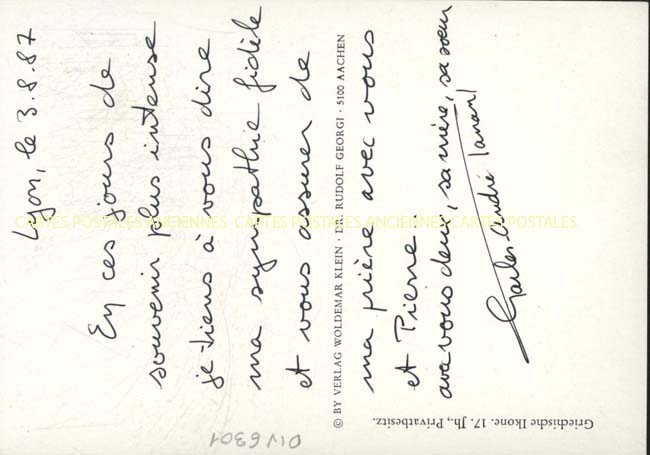 Lyon, le 3.8.87
En ces jours de
souvenir plus intense
je tiens à vous dire
ma sympathie fidèle
et vous assurer de
ma prière avec vous
et Pierre
avec vous deux, sa mère, sa sœur
Charles André
© BY VERLAG WOLDEMAR KLEIN · DR. RUDOLF GEORGI · 5100 AACHEN
Griechische Ikone. 17. Jh., Privatbesitz.
DIV6301
CARTES POSTALES ANCIENNES CARTES POSTALES ANCIENNES CARTES POSTALES